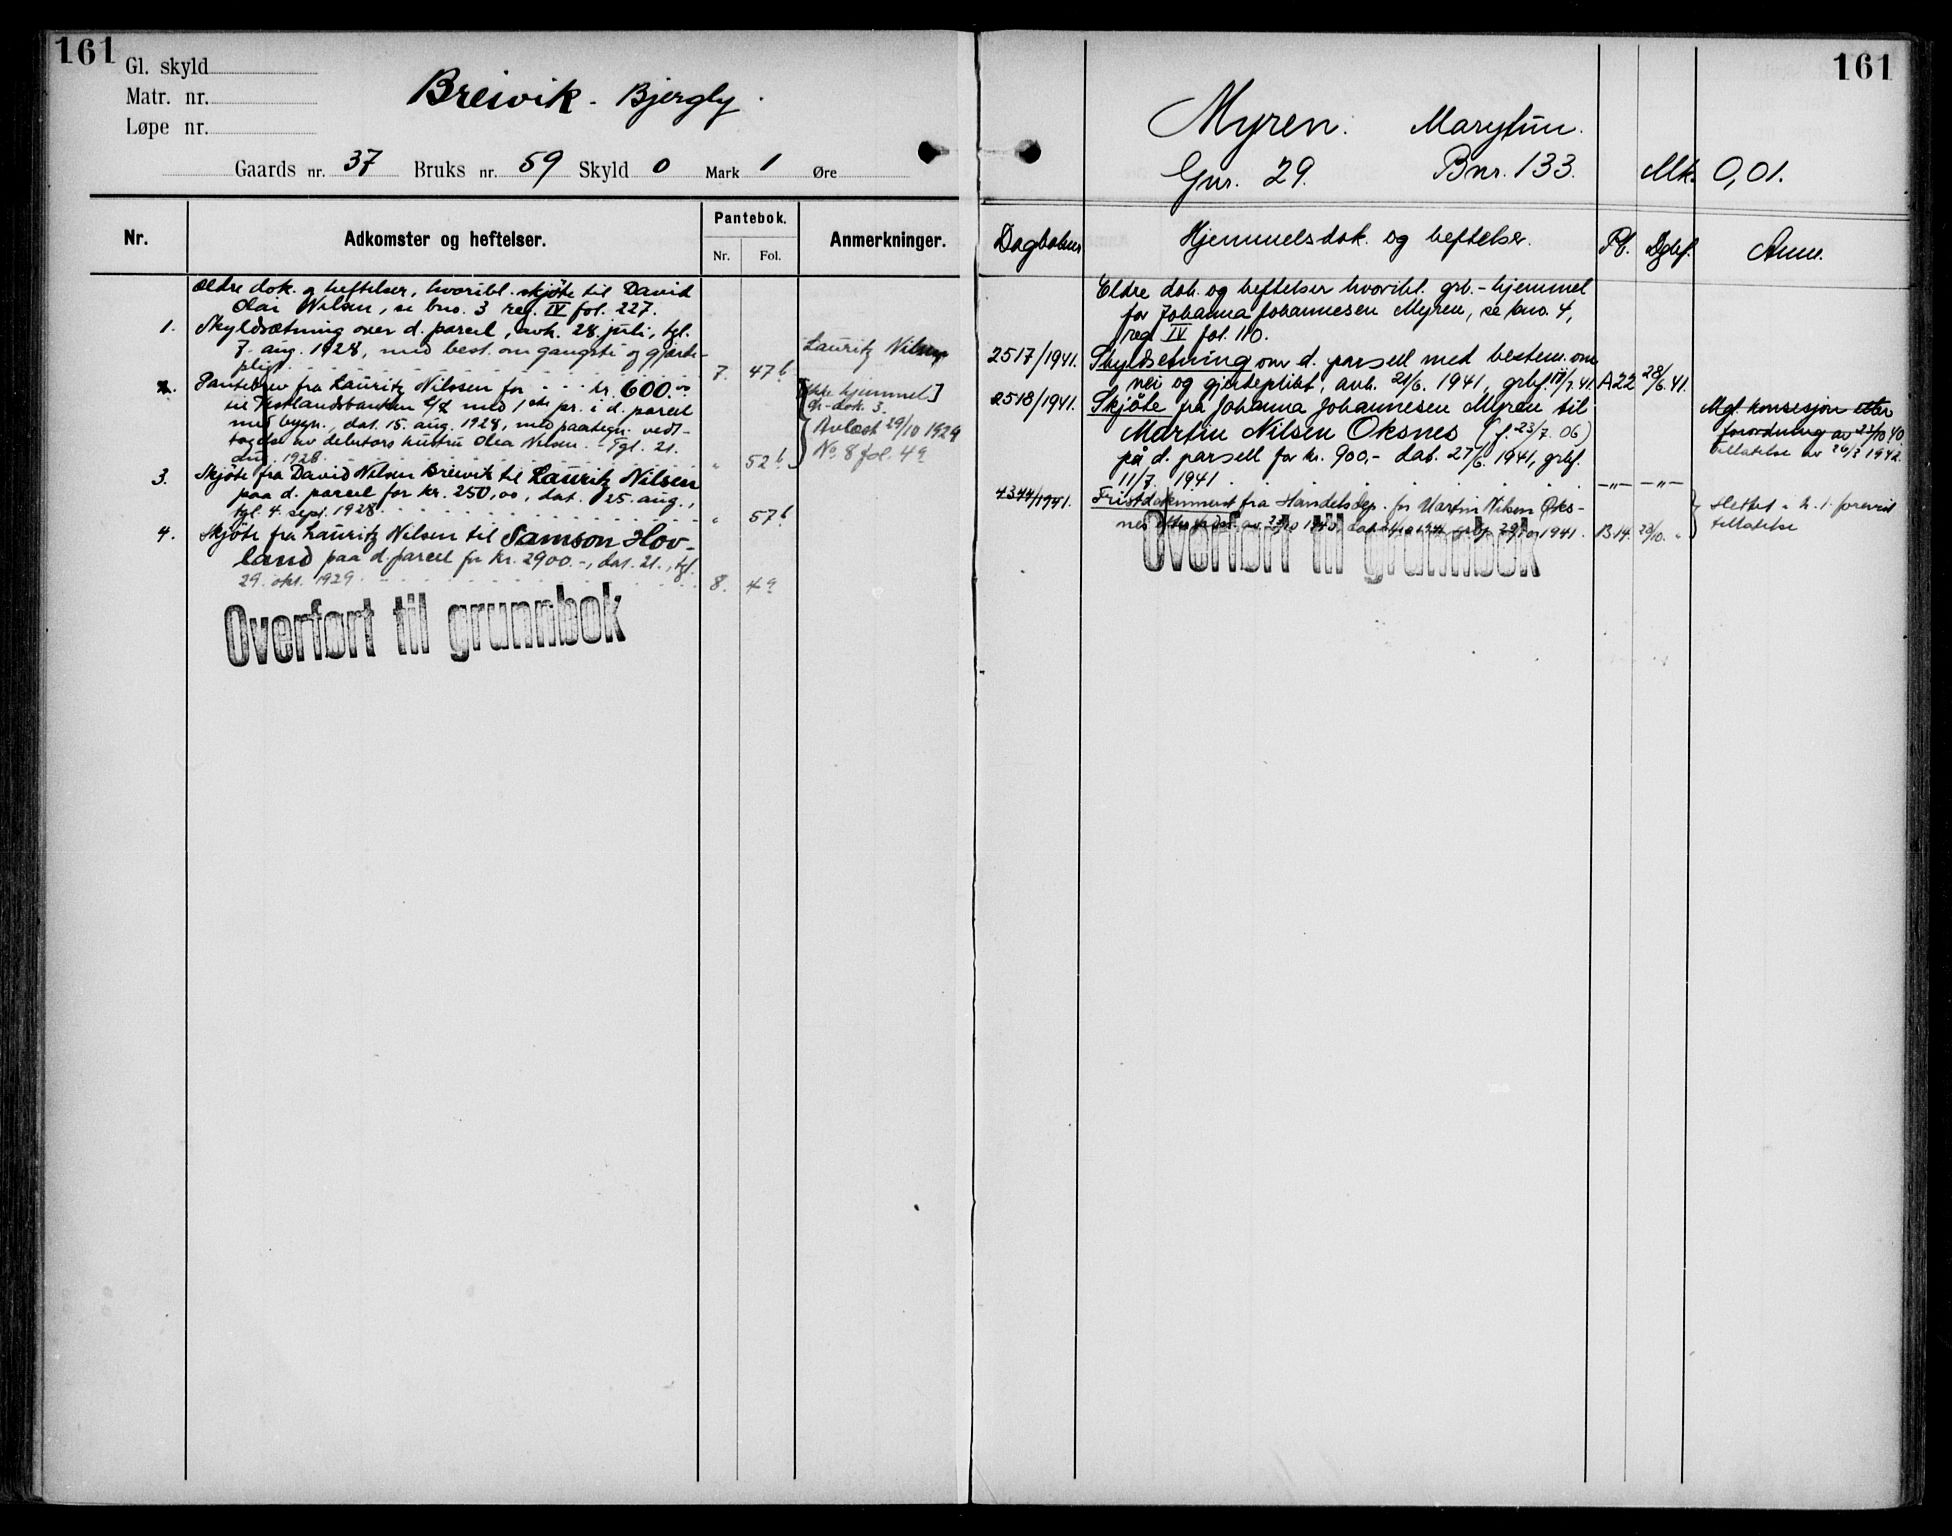 161
Gl. skyld
Matr. nr.
Løpe nr.
Breivik - Bjergly.
Gaards nr. 37 Bruks nr. 59 Skyld 0 Mark 1 Øre
Nr.
Adkomster og heftelser.
Pantebok.
Nr. Fol.
Anmerkninger.
Ældre dok. og heftelser, hvoribl. skjøte til David
Olai Nilsen, se bno. 3 reg. IV fol. 227.
1. Skyldsætning over d. parcel, avh. 28. juli, tgl.
7. aug. 1928, med best. om gangsti og gjærde-
pligt. 7. 47b
Lauritz Nilsen
2. Pantebrev fra Lauritz Nilssen for kr. 600.00
til Vestlandsbanken med 1ste pr. i d. parcel
med bygn., dat. 15. aug. 1928, med paategn. vedt-
agelse av debitors hustru Olea Nilsen. Tgl. 21.
aug. 1928 " 52b
[Ikke hjemmel]
dok. 3.
Avlæst 29/10 1929
No 8 fol. 4a
3. Skjøte fra David Nilsen Breivik til Lauritz Nilsen
paa d. parcel for kr. 250,00, dat. 25. aug.,
tgl. 4. sept. 1928 " 57b
4. Skjøte fra Lauritz Nilsen til Samson Hov-
land paa d. parcel for kr. 2900.-, dat. 21., tgl.
29. okt. 1929 8. 4a
Overført til grunnbok
161
Myren. Marytun.
Gnr. 29. Bnr. 133. Mk. 0,01.
Dagboknr Hjemmelsdok. og heftelser. Pb. Dgbf. Anm.
Eldre dok. og heftelser hvoribl. grb.-hjemmel
for Johanna Johannesen Myren, se bno. 4,
reg IV fol. 110.
2517/1941. Skyldsetning over d. parsell med bestem. om
vei og gjerdeplikt, avh. 21/6. 1941, grbf. 11/7. 41. A22 28/6.41.
2518/1941. Skjøte fra Johanna Johannesen Myren til
Martin Nilsen Oksnes (f. 23/7. 06)
på d. parsell for kr. 900,- dat. 27/6. 1941, grbf.
11/7. 1941. —"— —"—
Mgl. konsesjon etter
forordning av 23/10 40
tillatelse av 1942.
4344/1941. Fristdokument fra Handelsdep. for Martin Nilsen Oks-
nes 1941. B.14. 28/10. "
Slettet
tillatelse
Overført til grunnbok